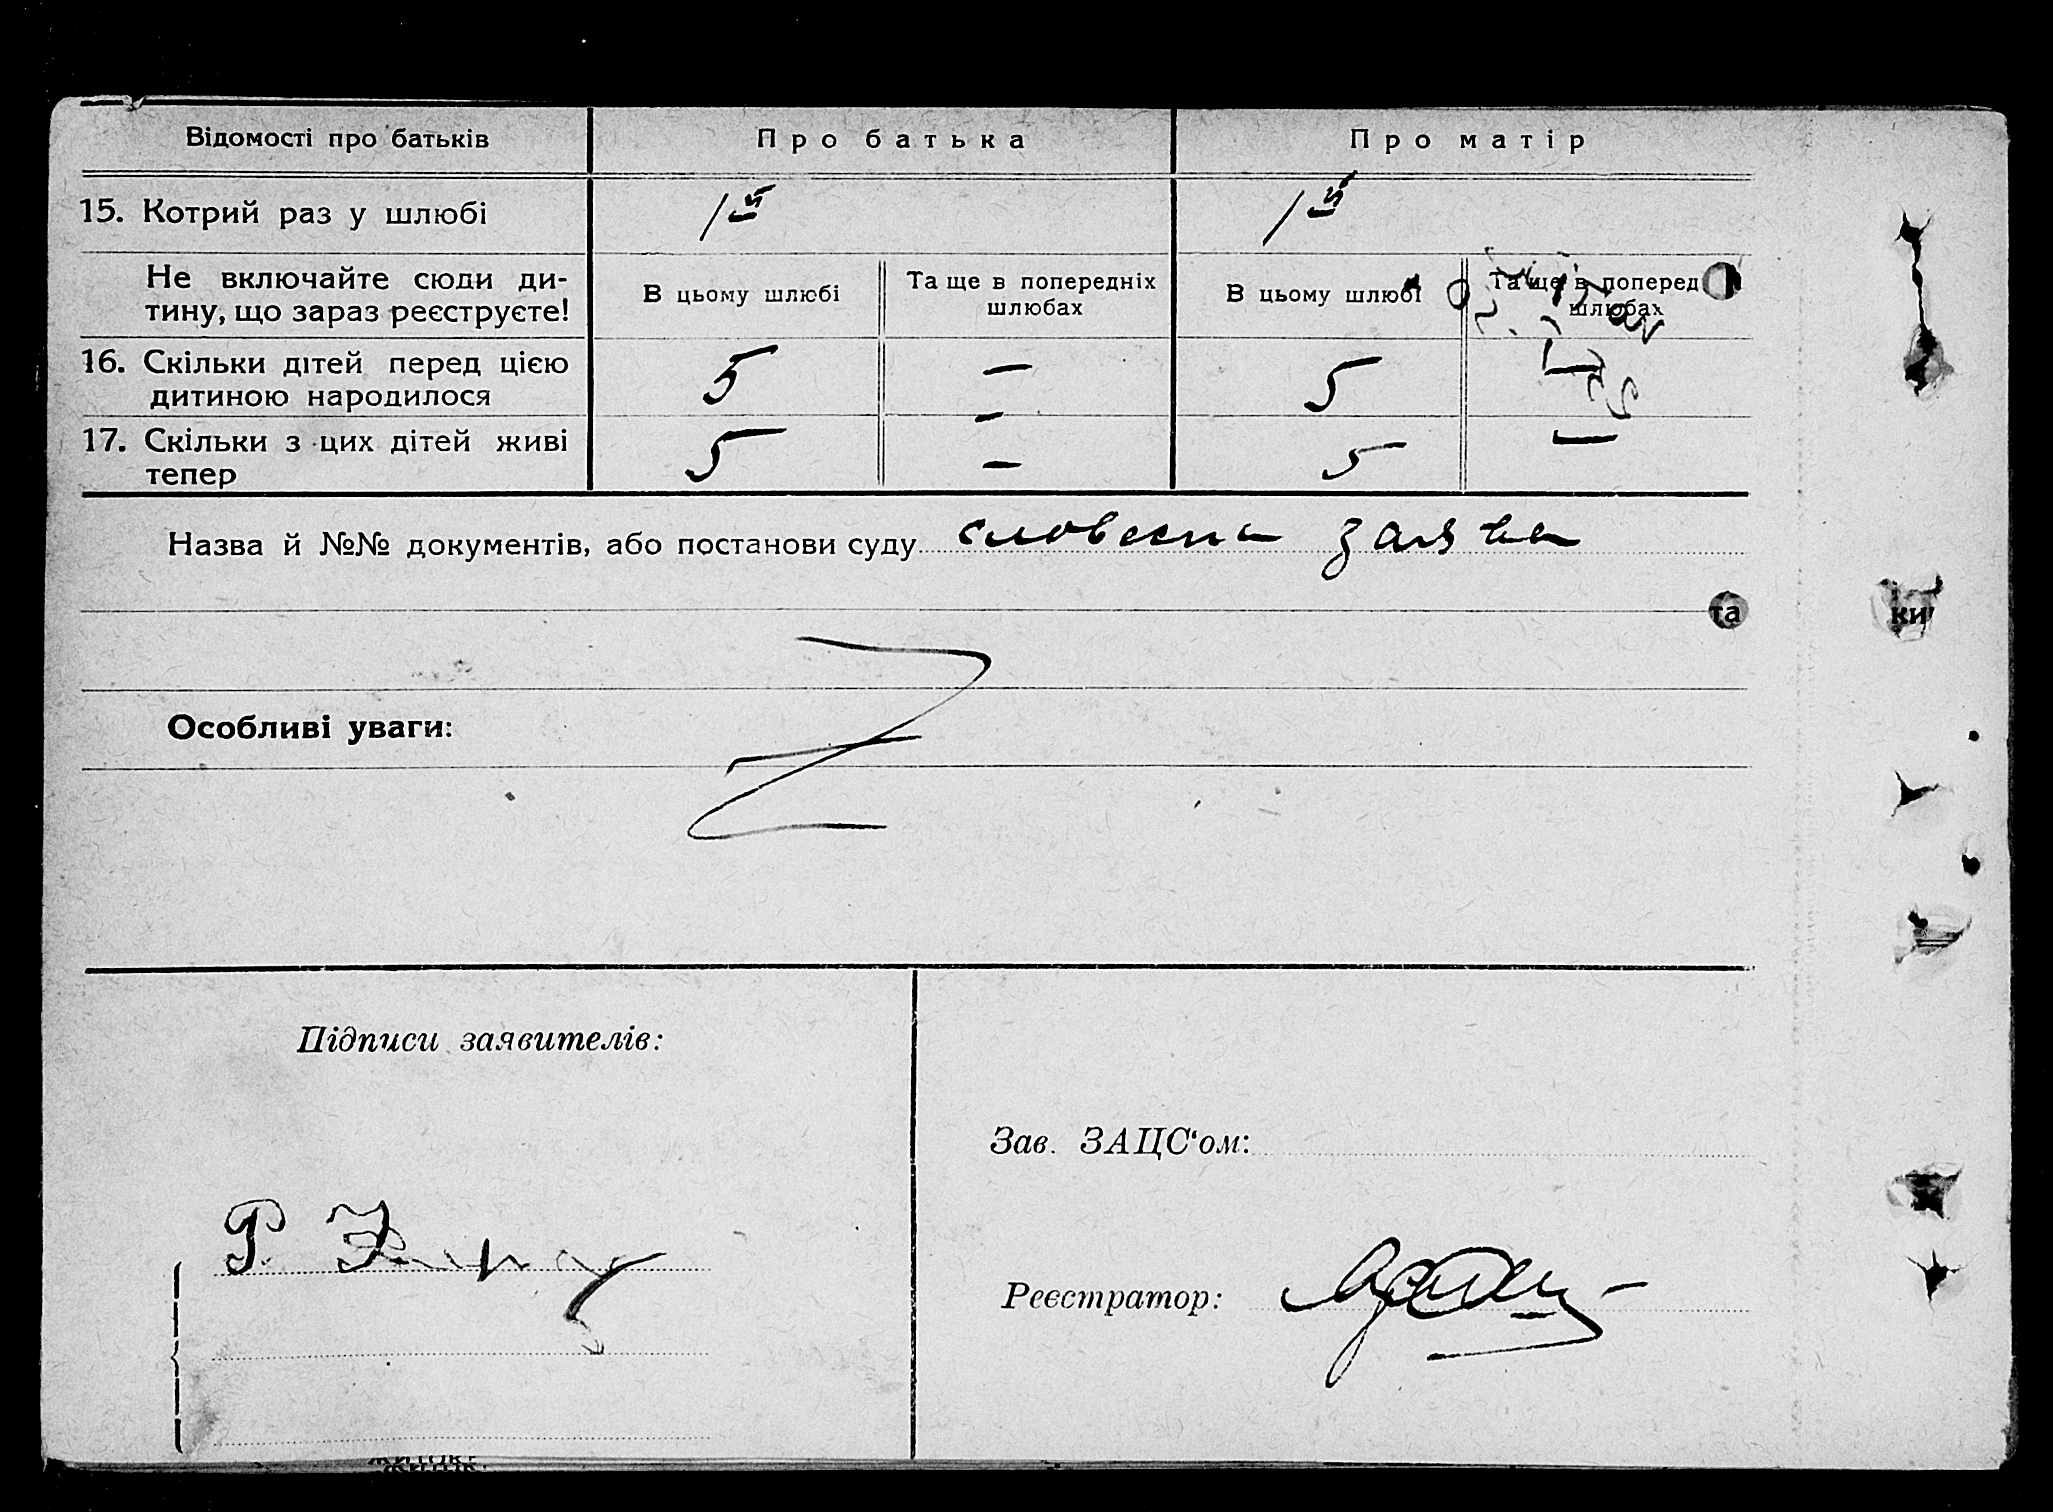 Відомості про батьків
Про батька
Про матір
15. Котрий раз у шлюбі
1й
1й
Не включайте сюди ди-
тину, що зараз реєструєте!
В цьому шлюбі
Та ще в попередніх
шлюбах
В цьому шлюбі
Та ще в поперед
шлюбах
16. Скільки дітей перед цією
дитиною народилося
5
—
5
—
17. Скільки з цих дітей живі
тепер
5
—
5
—
Назва й №№ документів, або постанови суду словесна заява
та
ки
Особливі уваги:
Підписи заявителів:
Р.
Зав. ЗАЦС‘ом:
Реєстратор: